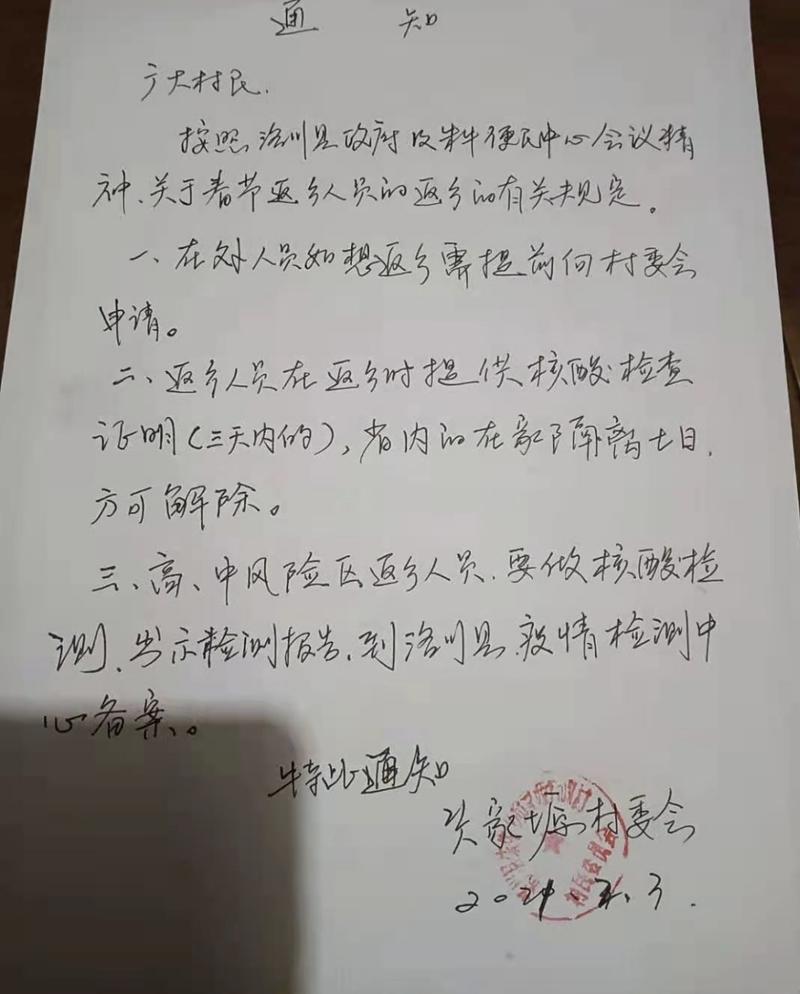 通 知
广大村民.
按照洛川县政府及朱牛便民中心会议精
神、关于春节返乡人员的返乡的有关规定。
一、在外人员如想返乡需提前向村委会
申请。
二、返乡人员在返乡时提供核酸检查
证明(三天内的),省内的在家隔离七日.
方可解除。
三、高、中风险区返乡人员.要做核酸检
测、出示检测报告.到洛川县疫情检测中
心备案、。
特此通知
家塬村委会
村民委员会